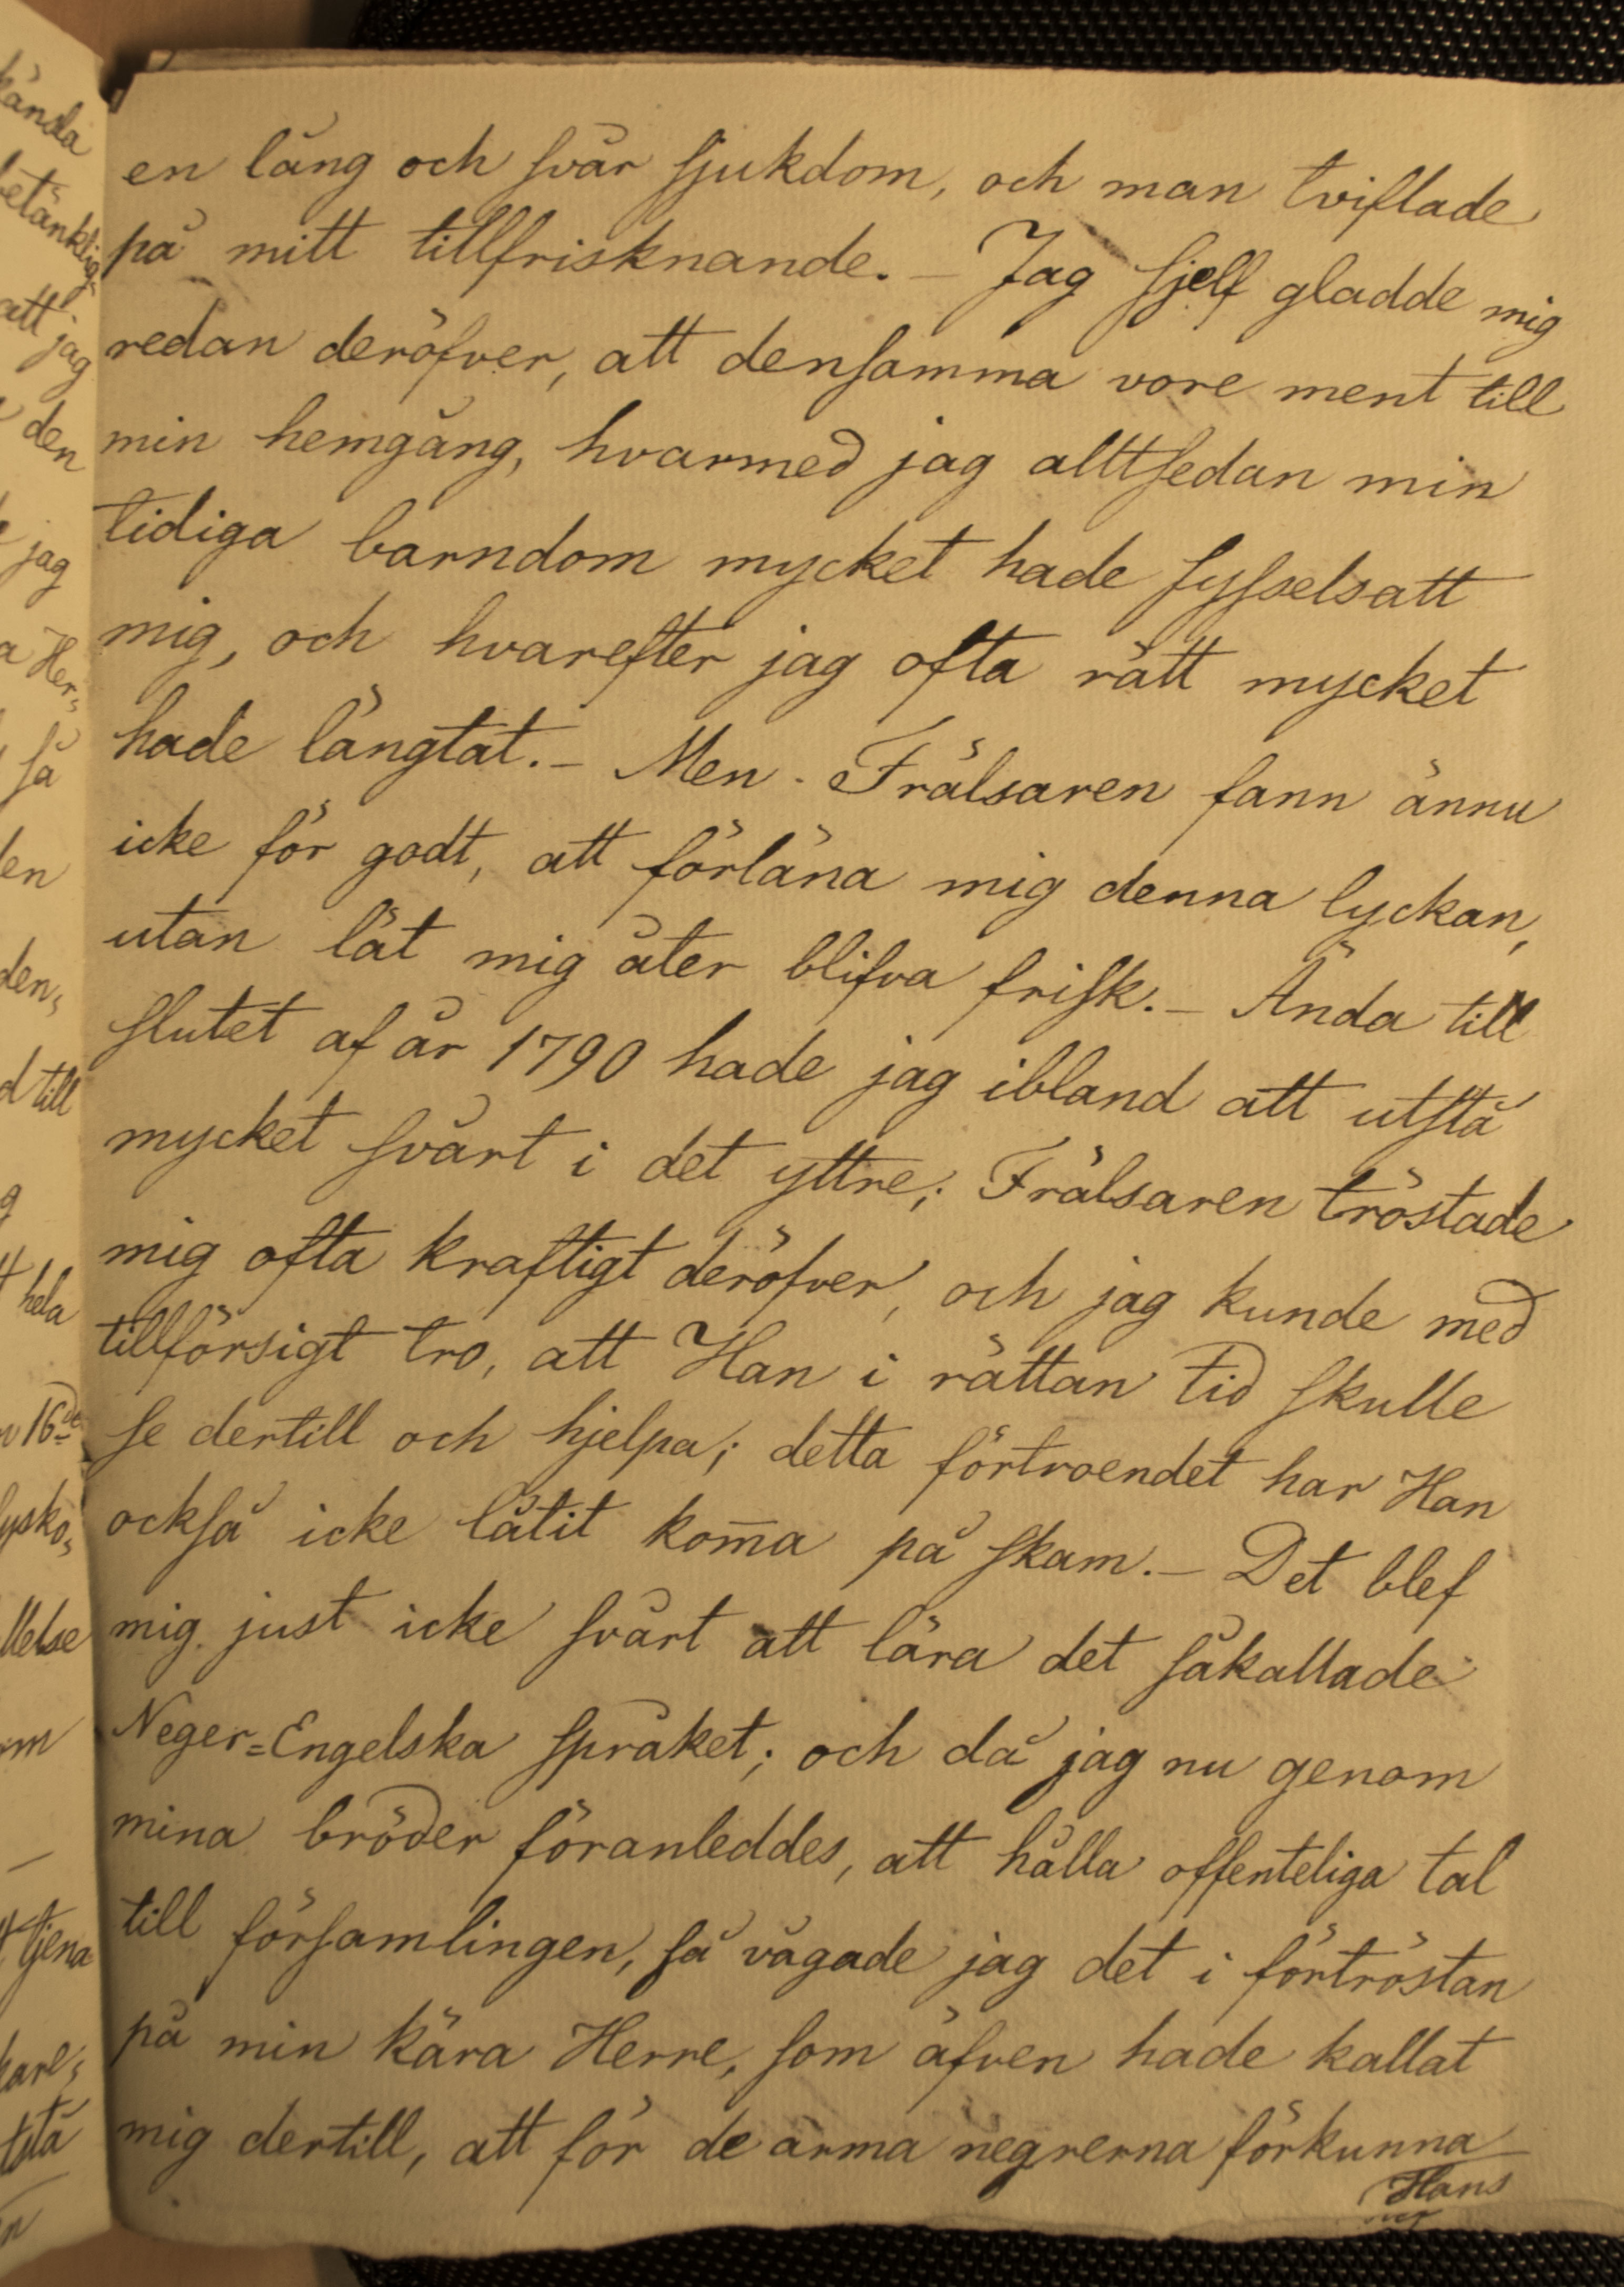 en lång och svår sjukdom, och man tviflade
på mitt tillfrisknande. – Jag sjelf gladde mig
redan deröfver, att densamma vore ment till
min hemgång, hvarmed jag alltsedan min
tidiga barndom mycket hade sysselsatt
mig, och hvarefter jag ofta rätt mycket
hade längtat. – Men - Frälsaren fann ännu
icke för godt, att förläna mig denna lyckan,
utan lät mig åter blifva frisk. – Ända till
slutet af år 1790 hade jag ibland att utstå
mycket svårt i det yttre; Frälsaren tröstade
mig ofta kraftigt deröfver, och jag kunde med
tillförsigt tro, att Han i rättan tid skulle
se dertill och hjelpa; detta förtroendet har Han
också icke låtit kom̄a på skam. – Det blef
mig just icke svårt att lära det såkallade
Neger=Engelska språket; och då jag nu genom
mina bröder föranleddes, att hålla offenteliga tal
till församlingen, så vågade jag det i förtröstan
på min kära Herre, som äfven hade kallat
mig dertill, att för de arma negrerna förkunna
Hans
kända
betänklig
att jag
den
jag
Her=
så
den=
d till
hela
16de
llelse
tjena